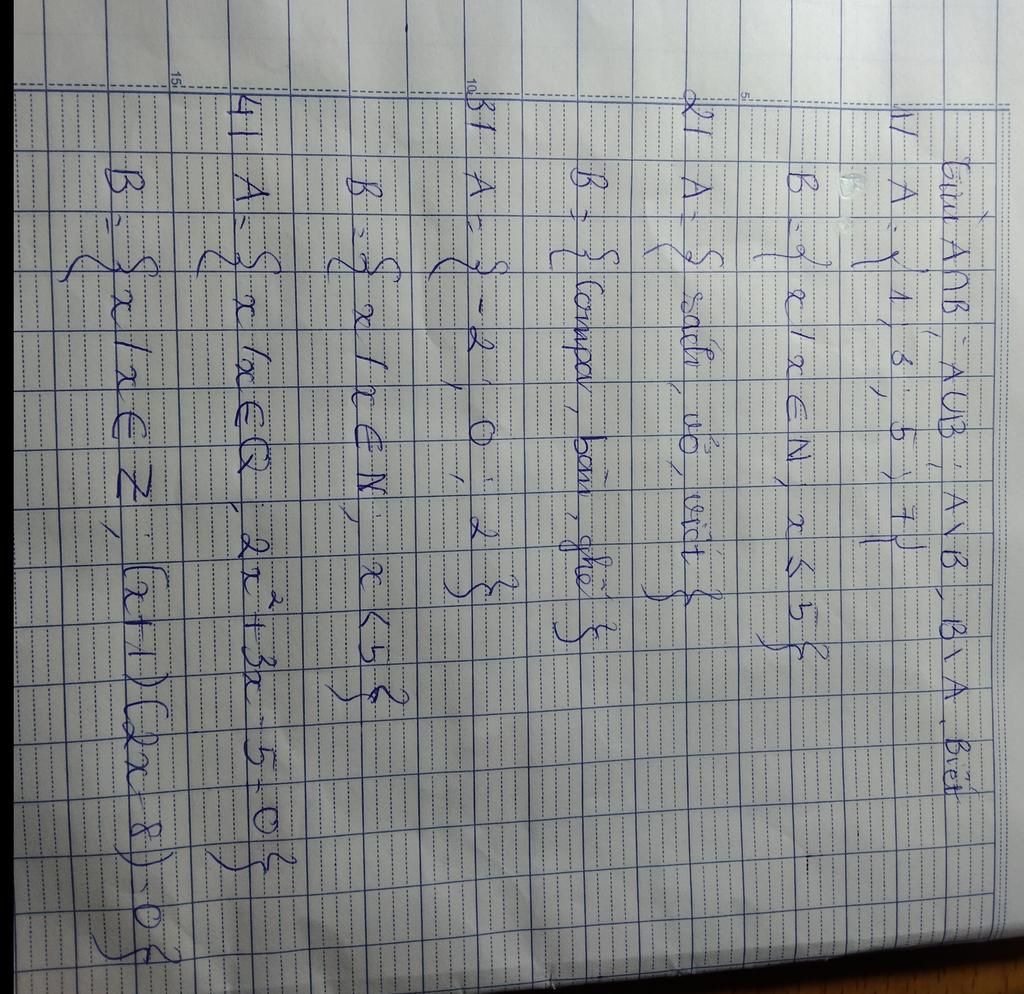 Tìm A∩B; A∪B; A\B, B\A. Biết
1/ A = { 1; 3; 5; 7 }
B = { x / x ∈ N, x ≤ 5 }
2/ A = { sách, vở, viết }
B = { Compa, bàn, ghế }
3/ A = { -2; 0; 2 }
B = { x / x ∈ N; x < 5 }
4/ A = { x / x ∈ Q, 2x² + 3x - 5 = 0 }
B = { x / x ∈ Z, (x + 1)(2x - 8) = 0 }
5
10
15